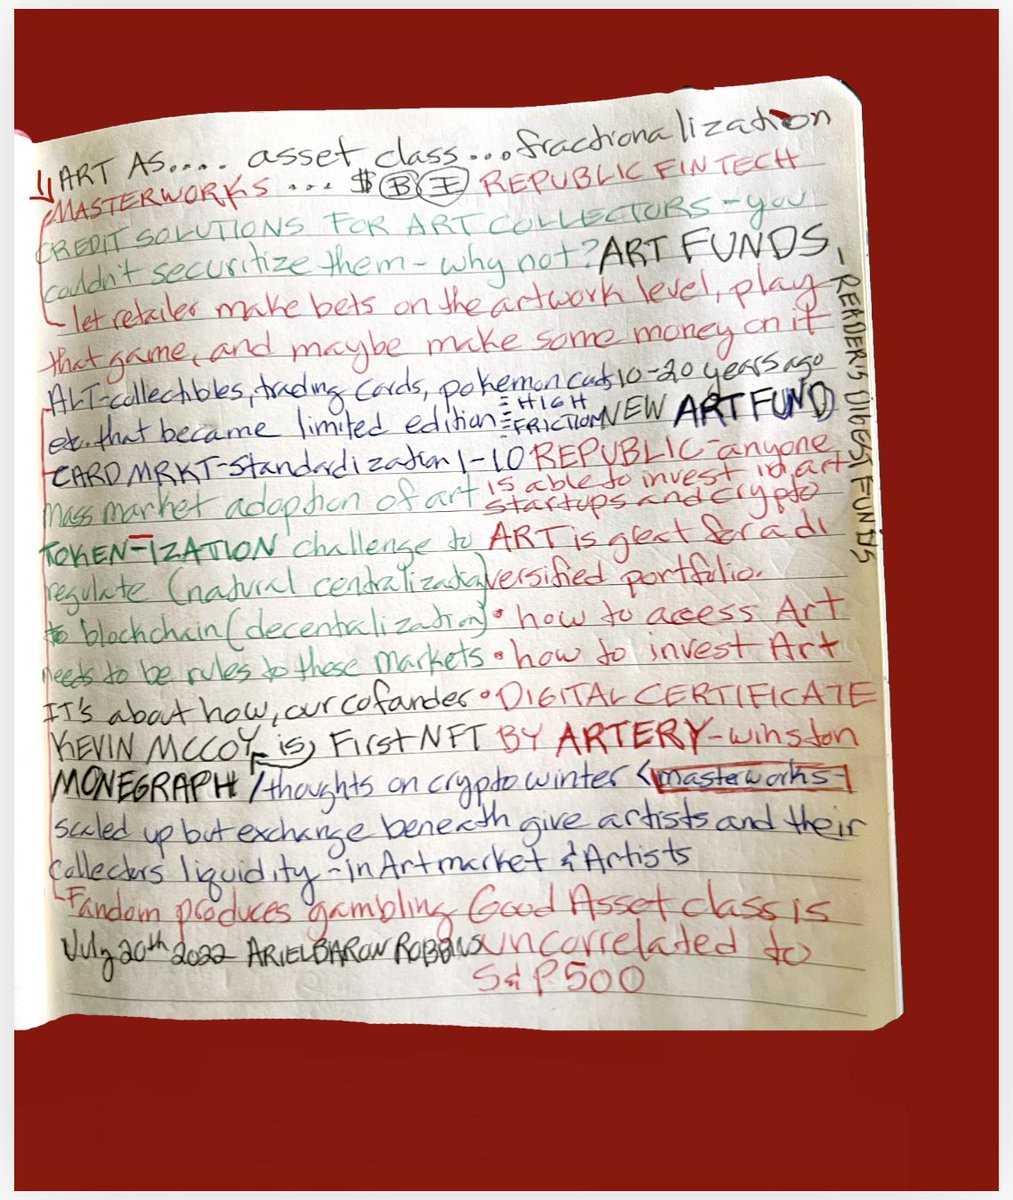 ART AS.... asset class...fractionalization
MASTERWORKS ... $ B E REPUBLIC FINTECH
CREDIT SOLUTIONS FOR ART COLLECTORS - you
couldn't securitize them - why not? ART FUNDS -
READER'S DIGEST FUNDS
let retailer make bets on the artwork level, play
that game, and maybe make some money on it
ALT-collectibles, trading cards, pokemon cards 10-20 years ago
etc. that became limited edition HIGH FRICTION NEW ART FUND
CARD MRKT-standardization 1-10 REPUBLIC-anyone
mass market adoption of art is able to invest in art
startups and crypto
TOKEN-IZATION challenge to ART is great for a di
regulate (natural centralization) versified portfolio.
to blockchain (decentralization) • how to access Art
needs to be rules to these markets • how to invest Art
IT'S about how, our cofander • DIGITAL CERTIFICATE
KEVIN MCCOY is, First NFT BY ARTERY-winston
MONEGRAPH / thoughts on crypto winter < masterworks-
scaled up but exchange beneath give artists and their
collectors liquidity - in Art market & Artists
Fandom produces gambling Good Asset class is
July 20th 2022 ARIEL BARON ROBBINS uncorrelated to
S&P500